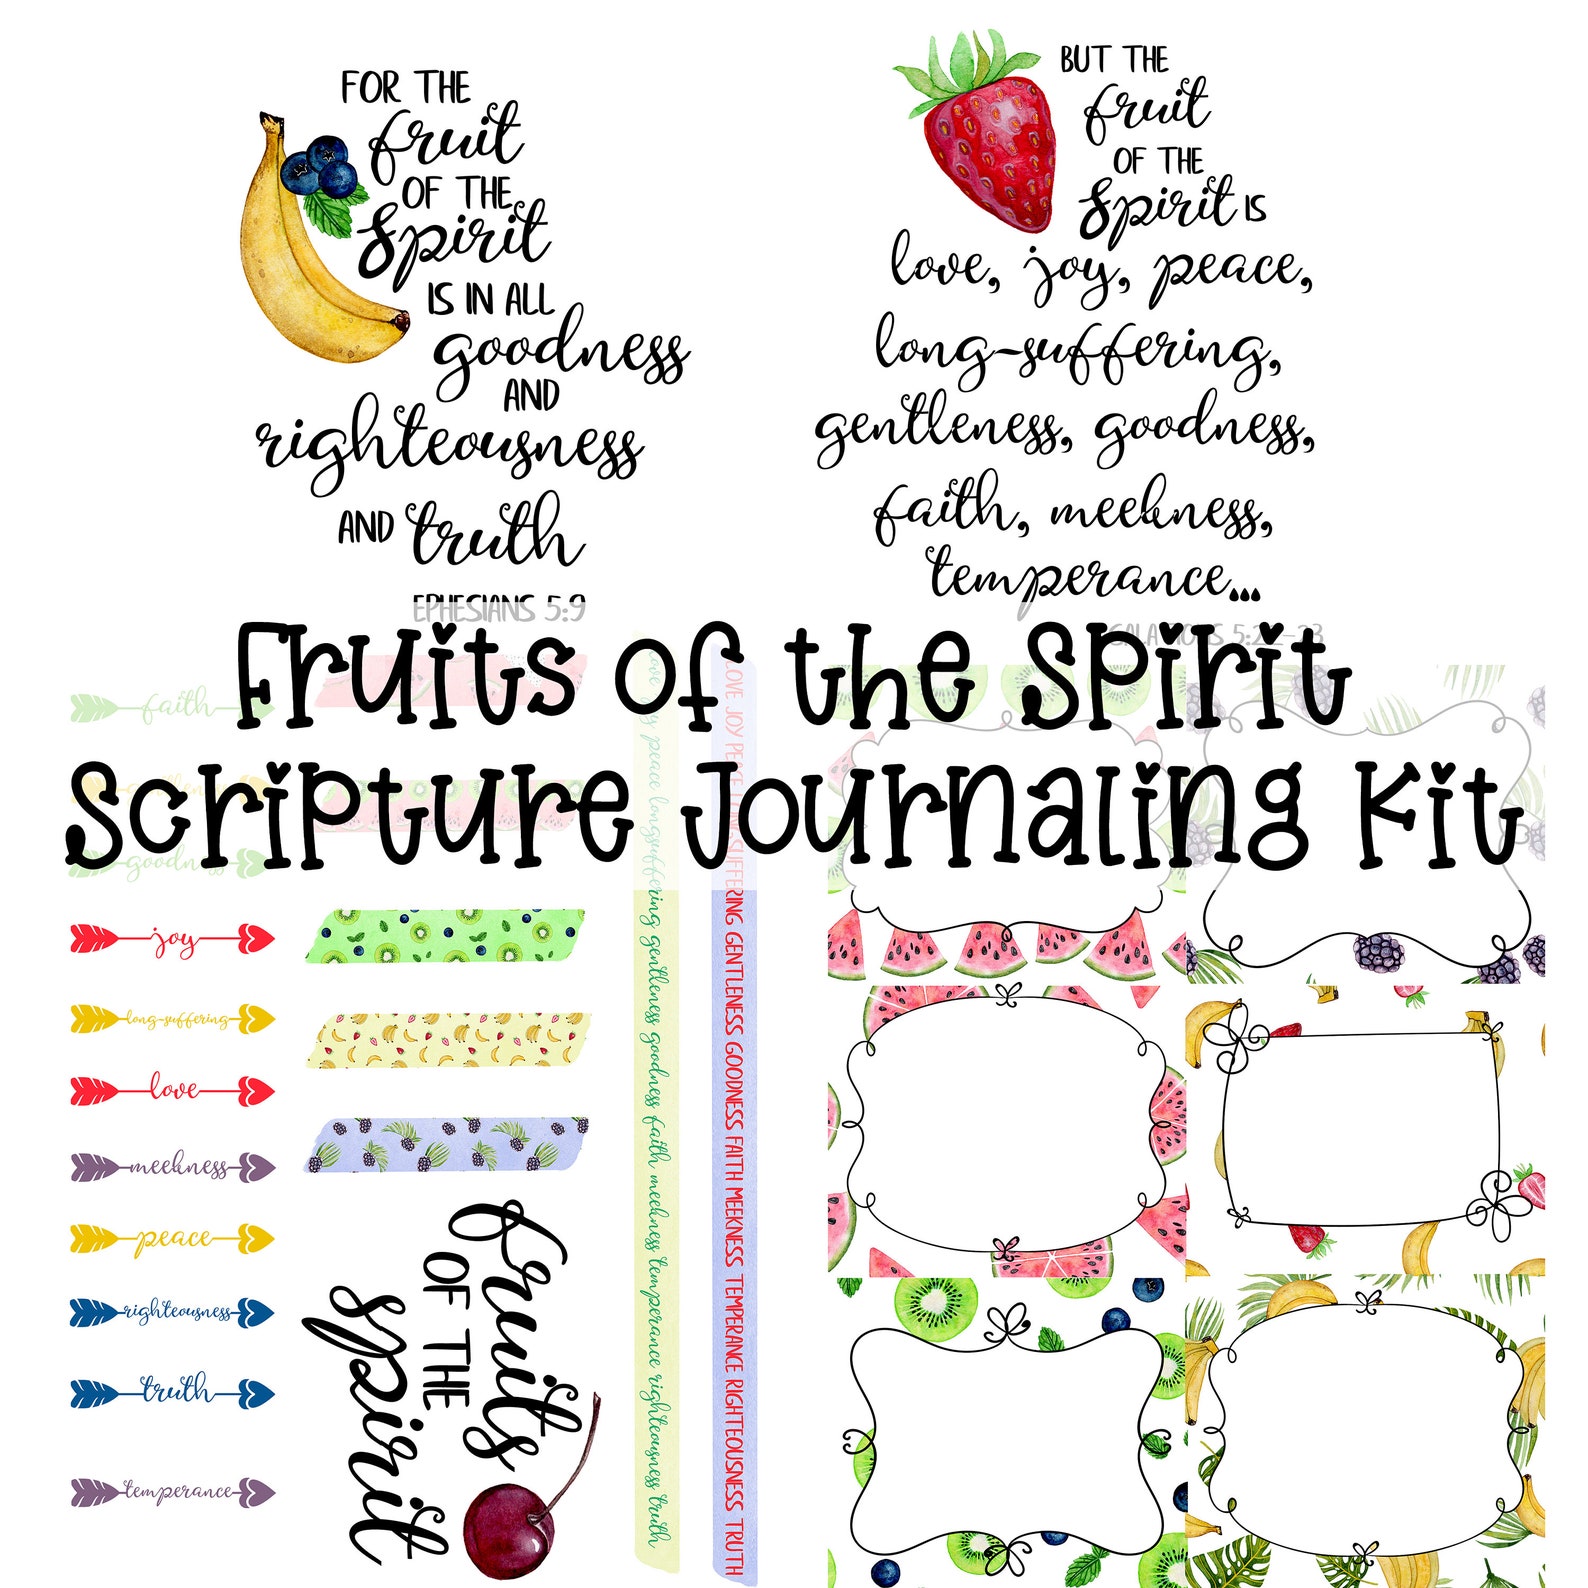 FOR THE
fruit
OF THE
Spirit
IS IN ALL
goodness
AND
righteousness
AND truth
EPHESIANS 5:9
BUT THE
fruit
OF THE
Spirit IS
love, joy, peace,
long-suffering,
gentleness, goodness,
faith, meekness,
temperance...
GALATIONS 5:22-23
Fruits of the Spirit
Scripture Journaling Kit
faith
goodness
joy
long-suffering
love
meekness
peace
righteousness
truth
temperance
Fruits
OF THE
Spirit
love joy peace longsuffering gentleness goodness faith meekness temperance righteousness truth
LOVE JOY PEACE LONGSUFFERING GENTLENESS GOODNESS FAITH MEEKNESS TEMPERANCE RIGHTEOUSNESS TRUTH